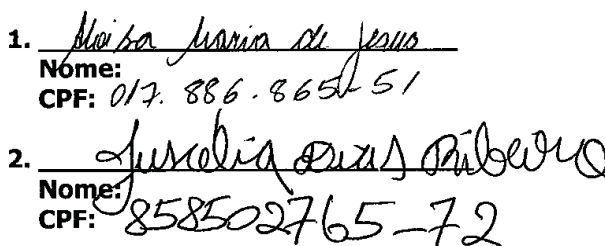 1. Maria de Jesus
Nome:
CPF: 017.886.865-51
2. Juscelia Dias Ribeiro
Nome:
CPF: 858502765-72